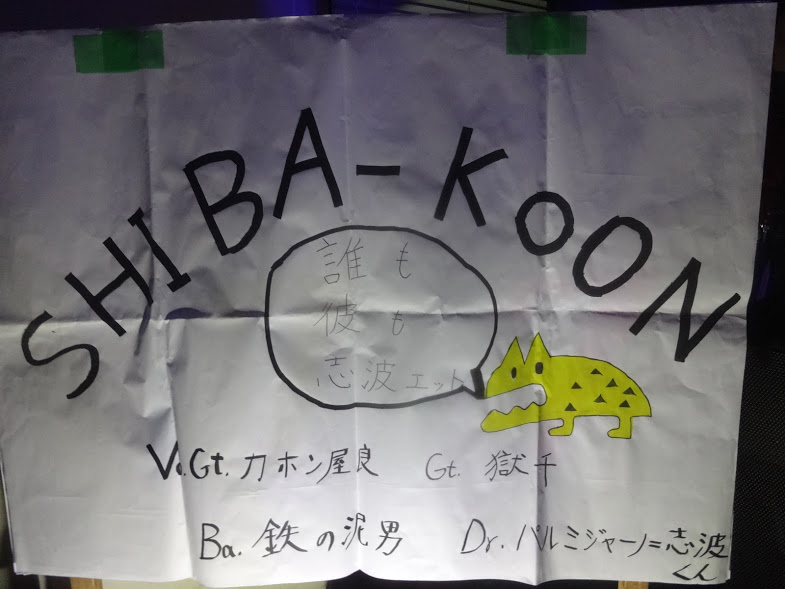 SHIBA-KOON
誰も
彼も
志波ェット
Vo.Gt. カホン屋良 Gt. 獄千
Ba. 鉄の泥男 Dr. パルミジャーノ=志波くん